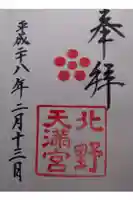 奉拝
北野
天満宮
平成二八年二月十三日